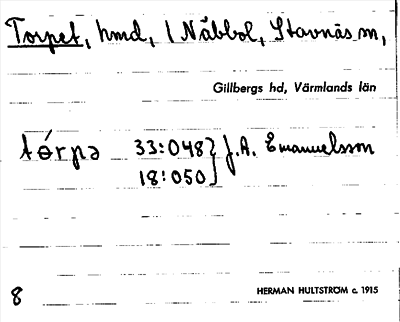 Torpet, hmd, 1 Näbbol, Stavnäs sn,
Gillbergs hd, Värmlands län
tórpə 33:048 } J.A. Emanuelsson
18:050
8 HERMAN HULTSTRÖM c. 1915